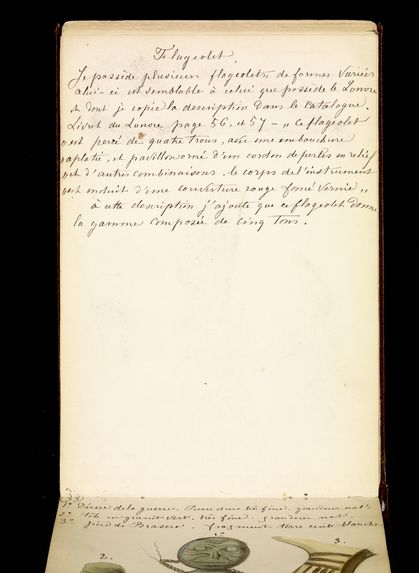 Flageolet.
Je possède plusieurs flageolets, de formes variées
celui-ci est semblable à celui que possède le Louvre
et dont je copie la description dans le Catalogue.
Livret du Louvre page 56. et 57 - „ Ce flageolet
„ est percé de quatre trous, avec une embouchure
„ aplatie, et pavillon orné d'un cordon de perles en relief
„ et d'autres combinaisons. le corps de l'instrument
„ est enduit d'une couverture rouge foncé vernie „
à cette description j'ajoute que ce flageolet donne
la gamme composée de cinq tons.
1° Déesse de la guerre. Pierre dure très fine, grandeur nat.
2° tête en granit vert, très fine - grandeur nat.
3° pied de Brasero. fragment terre cuite blanche
1°
2.
3.